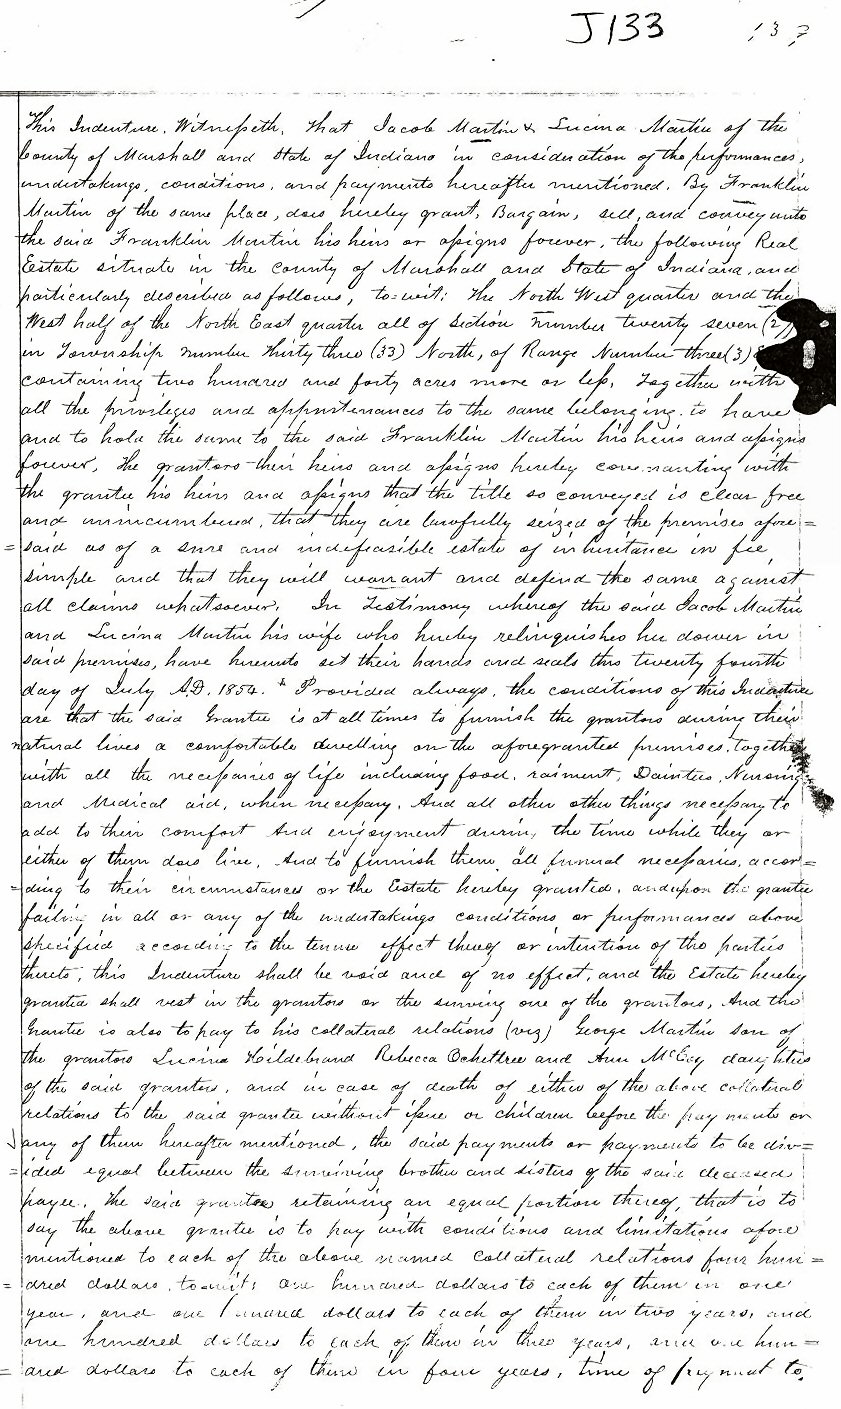 J133 137
This Indenture, Witnesseth, That Jacob Martin & Lucina Martin of the
County of Marshall and State of Indiana in consideration of the performances,
undertakings, conditions, and payments hereafter mentioned. By Franklin
Martin of the same place, does hereby grant, Bargain, sell, and convey unto
the said Franklin Martin his heirs or assigns forever, the following Real
Estate situate in the county of Marshall and State of Indiana, and
particularly described as follows, to=wit: The North West quarter and the
West half of the North East quarter all of Section number twenty seven (27)
in Township number Thirty three (33) North, of Range Number three (3)
containing two hundred and forty acres more or less, Together with
all the privileges and appurtenances to the same belonging. to have
and to hold the same to the said Franklin Martin his heirs and assigns
forever, The grantors their heirs and assigns hereby covenanting with
the grantee his heirs and assigns that the title so conveyed is clear free
and unincumbered, that they are lawfully seized of the premises afore=
=said as of a sure and indefeasible estate of inheritance in fee,
simple and that they will warrant and defend the same against
all claims whatsoever. In Testimony whereof the said Jacob Martin
and Lucina Martin his wife who hereby relinquishes her dower in
said premises, have hereunto set their hands and seals this twenty fourth
day of July A.D. 1854. * Provided always, the conditions of this Indenture
are that the said Grantee is at all times to furnish the grantors during their
natural lives a comfortable dwelling on the aforegranted premises, together
with all the necessaries of life including food, raiment, Dainties, Nursing
and Medical aid, when necessary. And all other other things necessary to
add to their comfort And enjoyment during the time while they or
either of them does live, And to furnish them all funeral necessaries, accor=
=ding to their circumstances or the Estate hereby granted, and upon the grantee
failing in all or any of the undertakings conditions or performances above
specified according to the tenure effect thereof or intention of the parties
thereto, this Indenture shall be void and of no effect, and the Estate hereby
granted shall vest in the grantors or the surviving one of the grantors, And the
Grantee is also to pay to his collateral relations (viz) George Martin son of
the grantors Lucina Hildebrand Rebecca Ockeltree and Ann McCoy daughters
of the said grantors, and in case of death of either of the above collateral
relations to the said grantee without issue or children before the payments or
any of them hereafter mentioned, the said payments or payments to be div=
=ided equal between the surviving brother and sisters of the said deceased
payee. The said grantee retaining an equal portion thereof, that is to
say the above grantee is to pay with conditions and limitations afore
mentioned to each of the above named collateral relations four hun=
=dred dollars, to=wit; one hundred dollars to each of them in one
year, and one hundred dollars to each of them in two years, and
one hundred dollars to each of them in three years, and one hun=
=dred dollars to each of them in four years, time of payment to